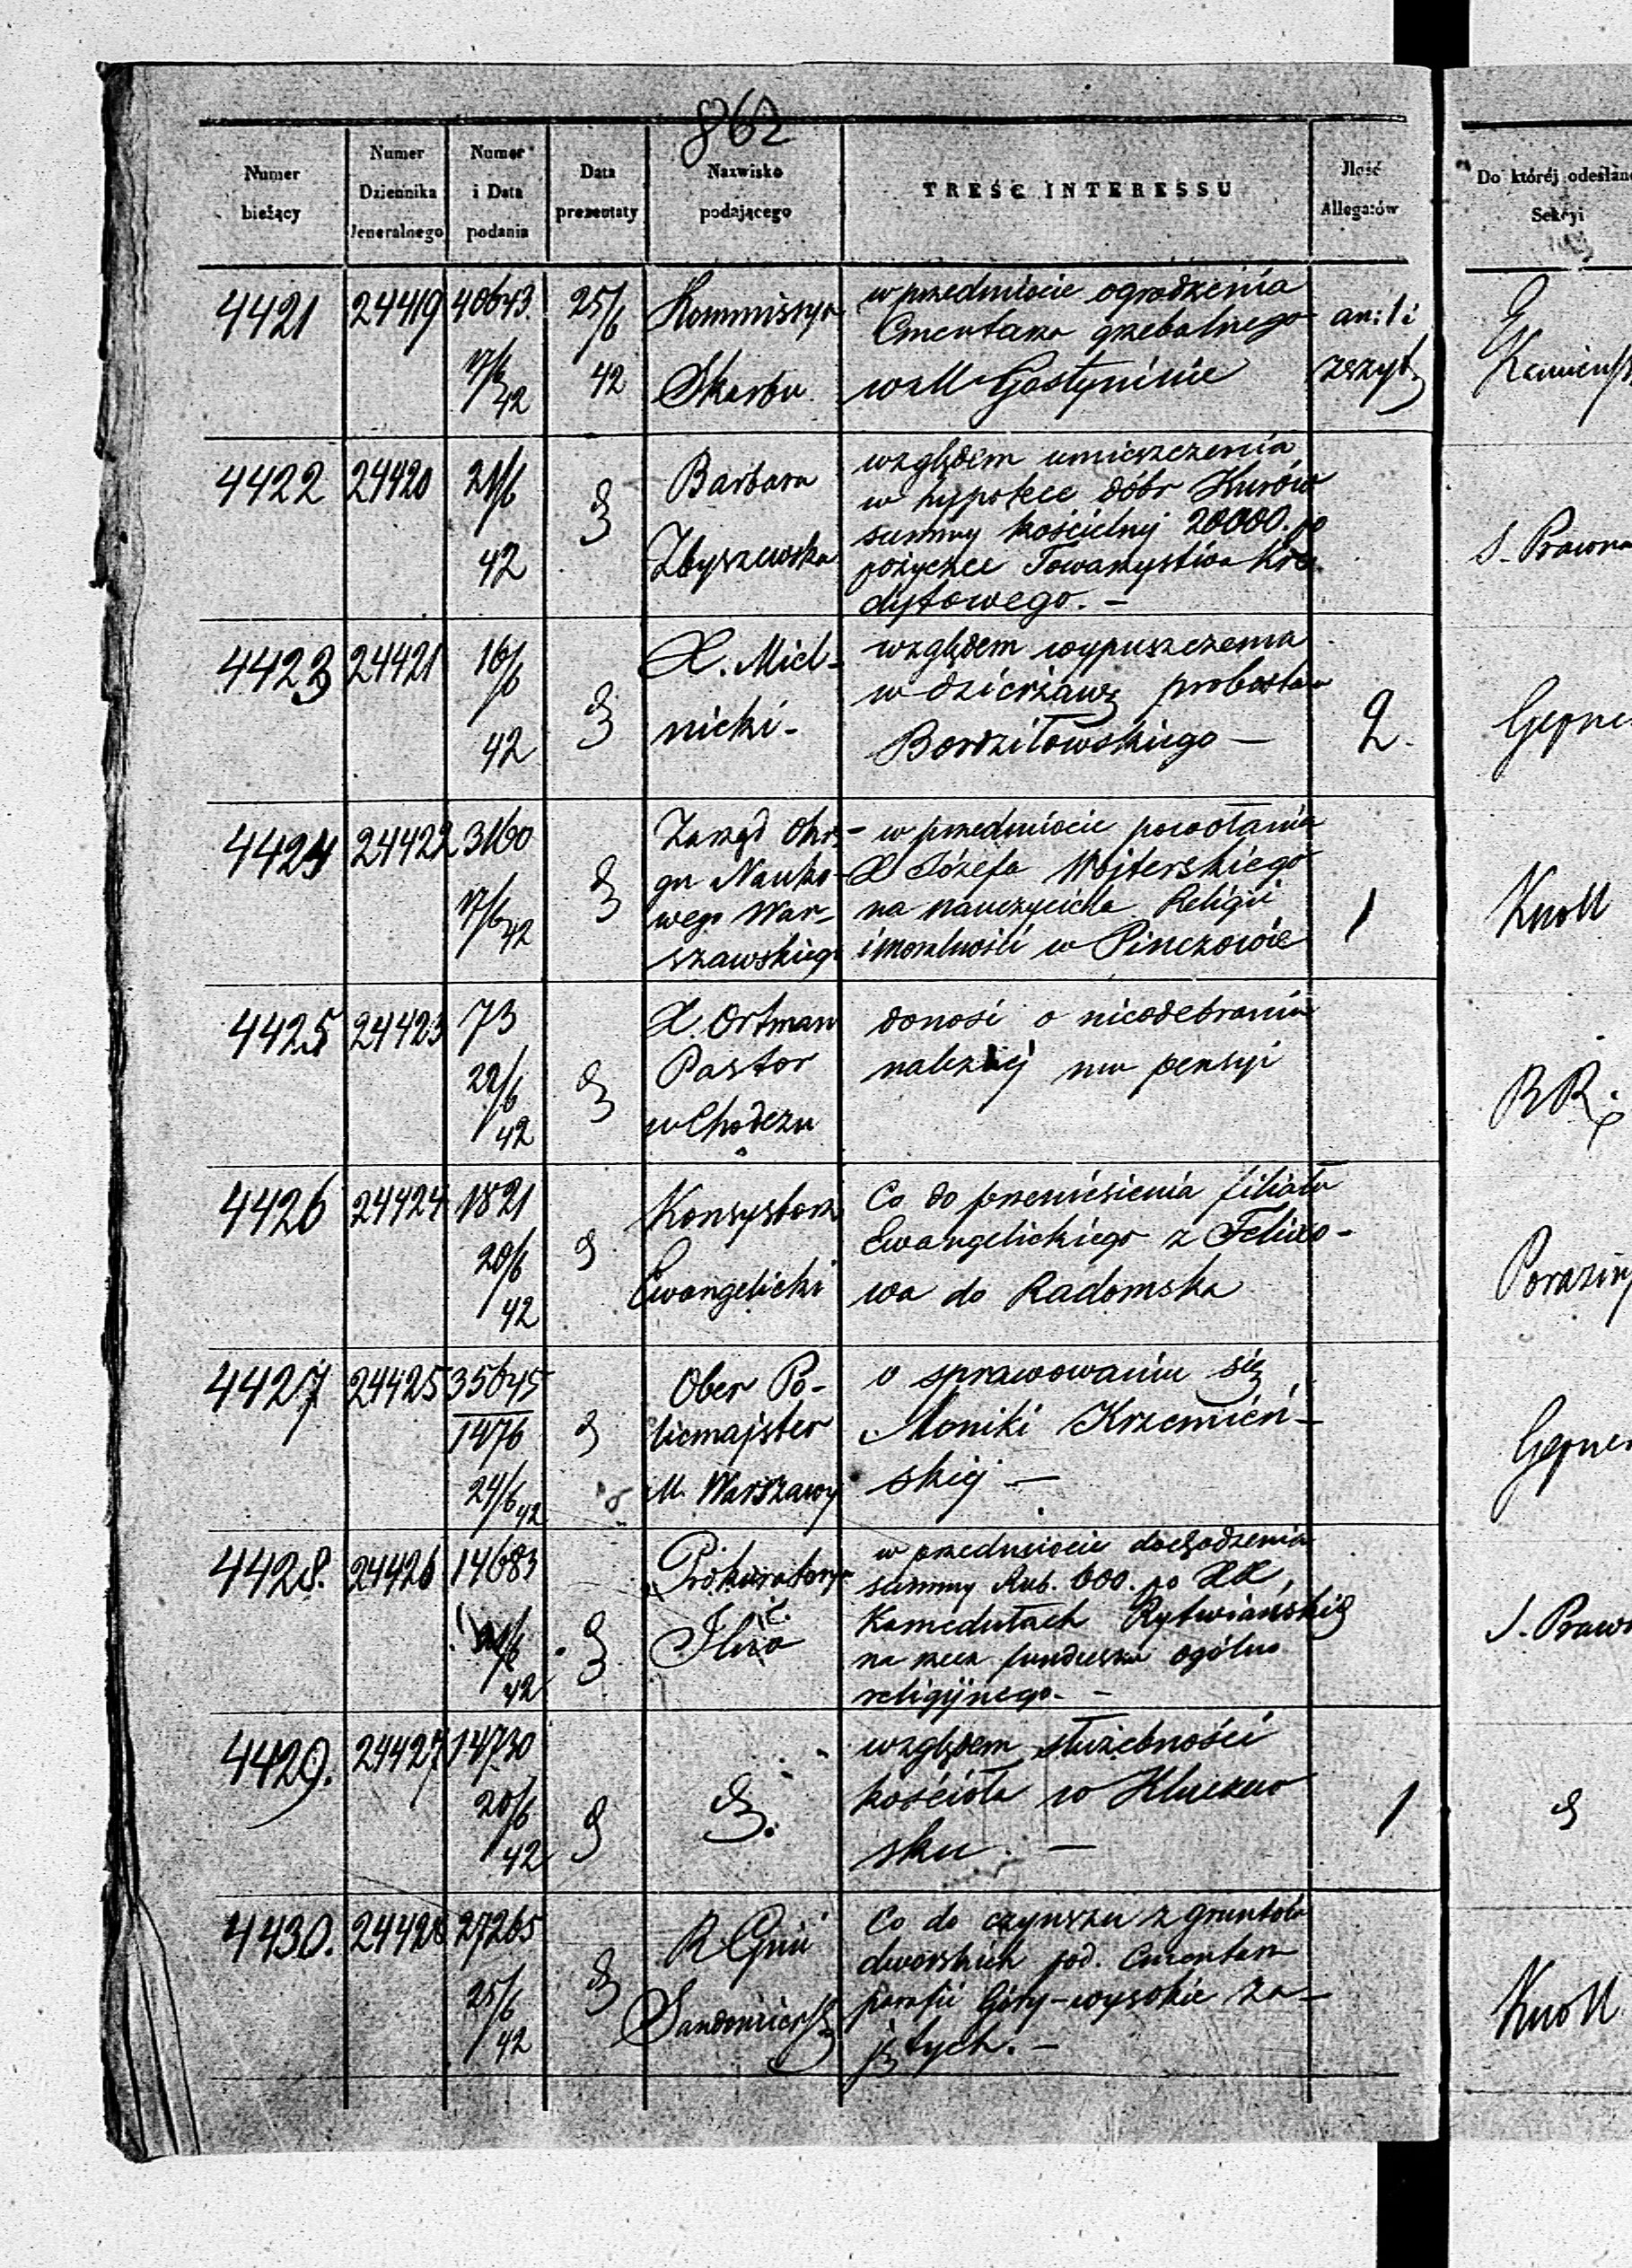 862
Numer bieżący
Numer Dziennika Jeneralnego
Numer i Data podania
Data prezentaty
Nazwisko podającego
TREŚĆ INTERESSU
Ilość Allegatów
Do któréj odesłano Sekcyi
4421 24419 40643. 17/6 42 25/6 42
Kommissya
Skarbu
w przedmiocie ogrodzenia
Cmentarza grzebalnego
w M Gostyninie
an: 1 i
zeszyt
4422 24420 21/6 42
Barbara
Zbyszewska
względem umieszczenia
w hypotece dóbr Kurów
summy kościelnej 20000. po
pożyczce Towarzystwa Kre
dytowego. –
S. Prawna
4423 24421 16/6 42
X. Miel-
nicki -
względem wypuszczenia
w dzierżawę probostwa
Bordziłowskiego –
2.
Gepne
4424 24422 3160 17/6 42
Zarząd Okr-
gu Nauko-
wego War-
szawskiego
w przedmiocie powołania
X Józefa Wojterskiego
na nauczyciela Religii
i moralności w Pinczowie
1
Knoll
4425 24423 73 22/6 42
X. Ortman
Pastor
w Chodczu
donosi o nieodebraniu
należnej mu pensyi
RR.
4426 24424 1821 20/6 42
Konsystorz
Ewangelicki
Co do przeniesienia filiału
Ewangelickiego z Felixo-
wa do Radomska
Poraziń
4427 24425 35645 1476 24/6 42
Ober Po-
licmajster
M. Warszawy
o sprawowaniu się
Moniki Krzemień-
skiej –
Gepner
4428. 24426 14683 42
Prokuratorya
w przedmiocie dochodzenia
summy Rub. 600. po XX,
Kamedułach Rytwiańskich
na rzecz funduszu ogólno
religijnego. –
S. Praw
4429. 24427 14730 20/6 42
względem służebności
kościoła w Kluczew
sku. –
1
4430. 24428 27265 25/6 42
R. Gnii
Sandomiers
Co do czynszu z gruntów
dworskich pod. Cmentarz
parafii Góry-wysokie za-
jętych. –
Knoll